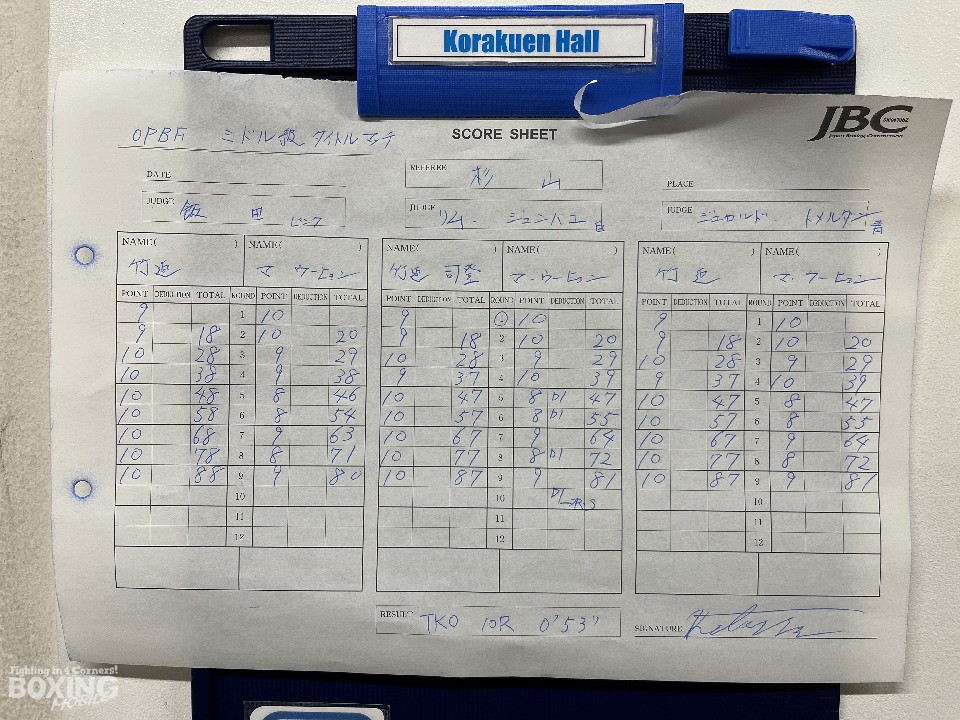 Korakuen Hall
JBC
OPBF ミドル級 タイトルマッチ
SCORE SHEET
DATE
REFEREE 杉 山
PLACE
JUDGE 飯 田
JUDGE リム. ジュンバエ
JUDGE ジェロルド. トメルダン
NAME( ) NAME( ) NAME( ) NAME( ) NAME( ) NAME( )
竹迫 マ ウーヒョン 竹迫 司登 マ. ウーヒョン 竹迫 マ. ウーヒョン
POINT DEDUCTION TOTAL ROUND POINT DEDUCTION TOTAL POINT DEDUCTION TOTAL ROUND POINT DEDUCTION TOTAL POINT DEDUCTION TOTAL ROUND POINT DEDUCTION TOTAL
9 1 10 9 1 10 9 1 10
9 18 2 10 20 9 18 2 10 20 9 18 2 10 20
10 28 3 9 29 10 28 3 9 29 10 28 3 9 29
10 38 4 9 38 9 37 4 10 39 9 37 4 10 39
10 48 5 8 46 10 47 5 8 D1 47 10 47 5 8 47
10 58 6 8 54 10 57 6 8 D1 55 10 57 6 8 55
10 68 7 9 63 10 67 7 9 64 10 67 7 9 64
10 78 8 8 71 10 77 8 8 D1 72 10 77 8 8 72
10 88 9 9 80 10 87 9 9 81 10 87 9 9 81
10 10 10
11 11 11
12 12 12
RESULT TKO 10R 0'53"
SIGNATURE
Fighting in 4 Corners!
BOXING
MOBILE